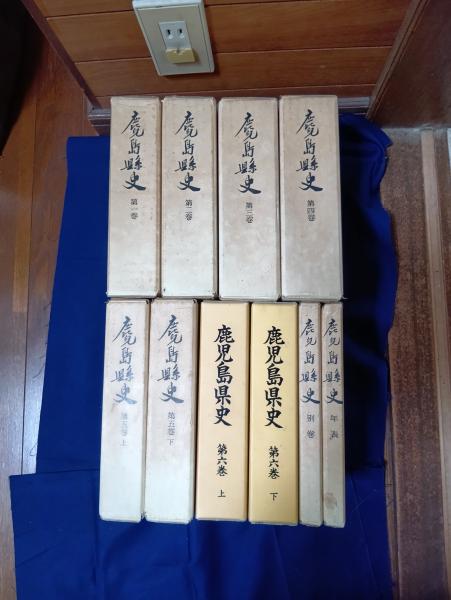 鹿児島縣史 第一巻
鹿児島縣史 第二巻
鹿児島縣史 第三巻
鹿児島縣史 第四巻
鹿児島縣史 第五巻 上
鹿児島縣史 第五巻 下
鹿児島県史 第六巻 上
鹿児島県史 第六巻 下
鹿児島縣史 別巻
鹿児島縣史 年表